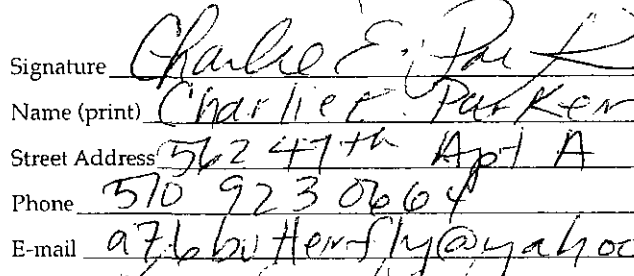 Signature Charlie E. Park
Name (print) Charlie E. Parker
Street Address 562 47th Apt A
Phone 510 923 0664
E-mail a76butterfly@yahoo